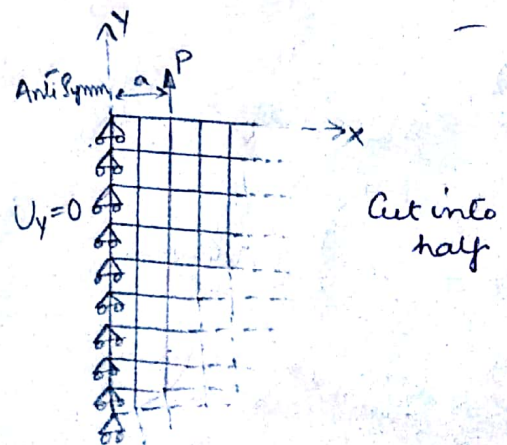 Y
P
a
Anti Symm
x
Uy=0
Cut into
half